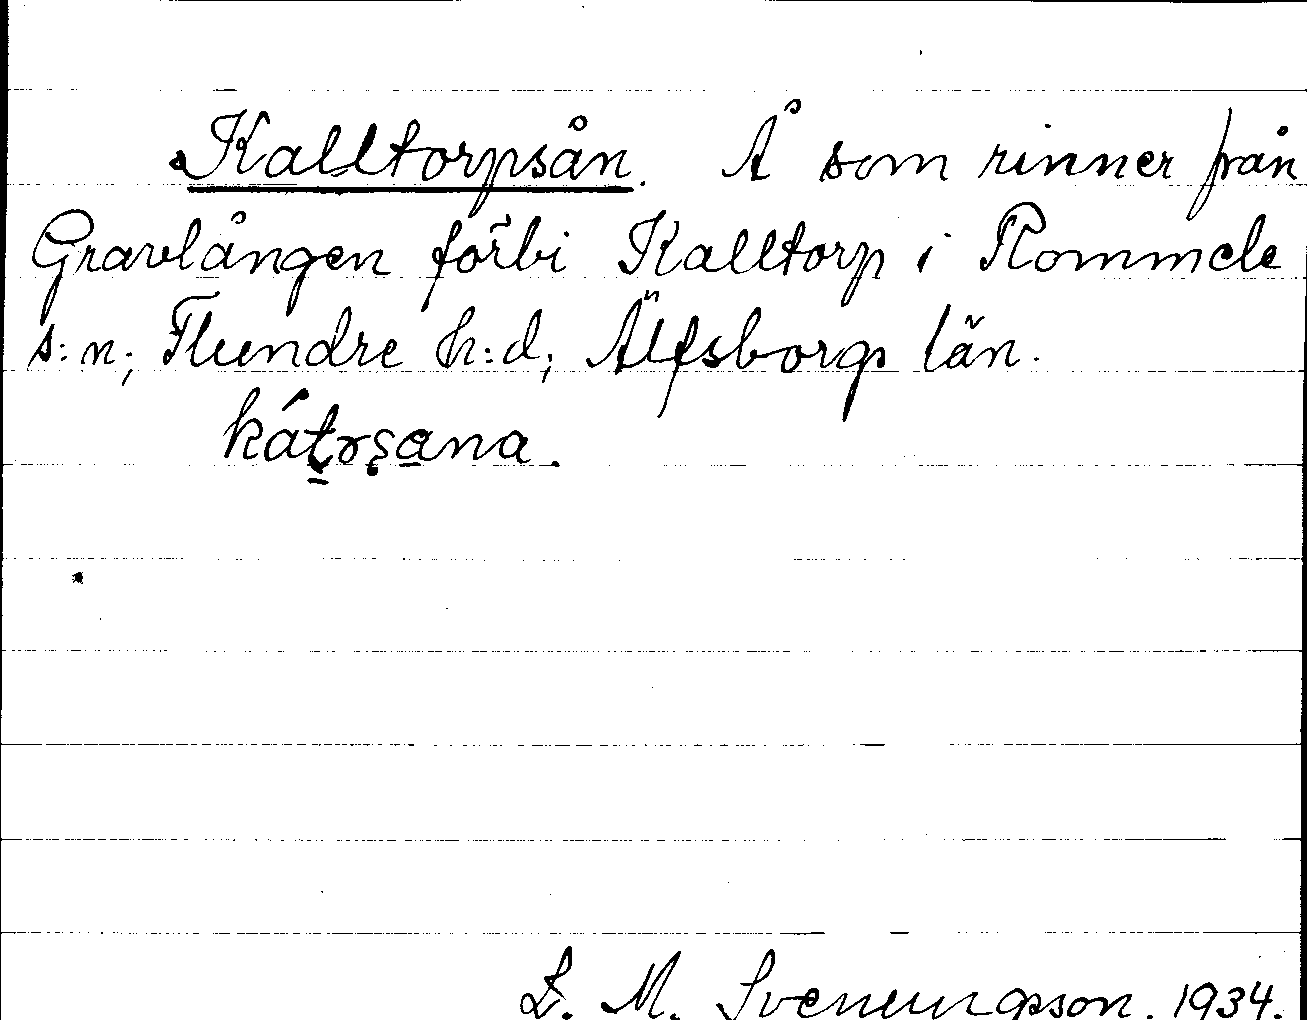 Kalltorpsån. Å som rinner från
Gravlången förbi Kalltorp i Rommele
s:n; Flundre h:d; Älfsborgs län.
kátrsana.
L. M. Svenungsson. 1934.